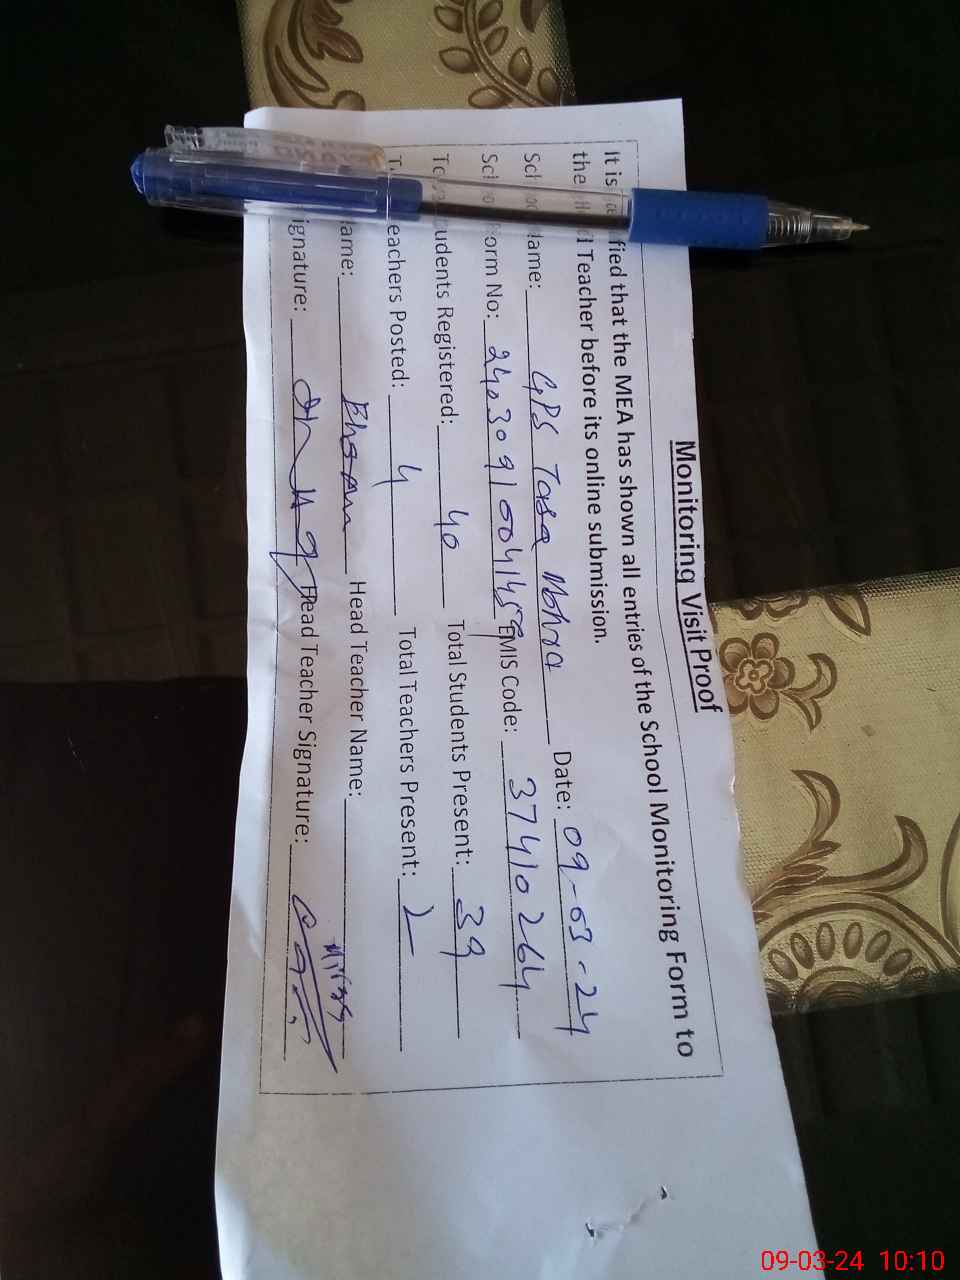 Monitoring Visit Proof
It is fied that the MEA has shown all entries of the School Monitoring Form to
the d Teacher before its online submission.
Name: GPS Tasa Mohra Date: 09-03-24
Form No: EMIS Code: 37410264
udents Registered: 40 Total Students Present: 39
eachers Posted: 4 Total Teachers Present: 2
ame: Head Teacher Name:
ignature: Head Teacher Signature:
09-03-24 10:10